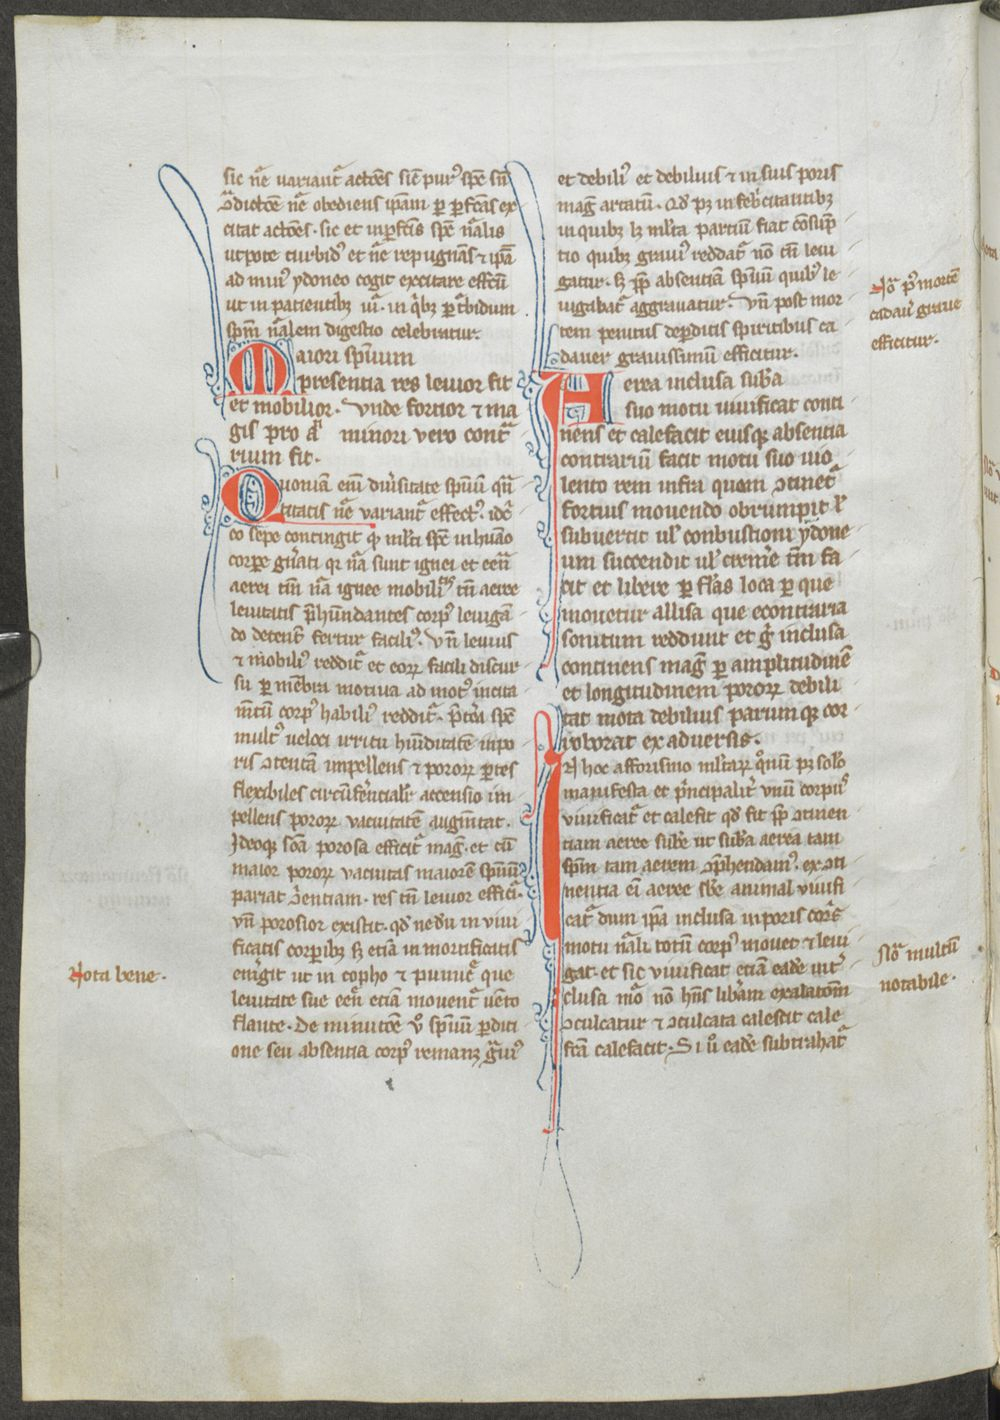 sic nc̄ uariant᷑ actōes siē pur᷒ sp̄e sn̄
ꝯdictōe nc̄ obediens ip̄am ꝑ ꝑfc̄as ex
citat actōes. sic et inꝑfc̄is sp̄e nr̄alis
utpote turbid᷒ et nc̄ repugnās ⁊ ip̄a
ad min᷒ ydoneo cogit excitare effc̄ū
ut in patientibꝫ iiii᷒. in qͥbꝫ ꝑ turbidum
sp̄m nr̄alem digestio celebratur.
Maiori spirituum
presentia res leuior fit
et mobilior. vnde fortior ⁊ ma
gis pro minori vero cont᷑
rium fit.
Quoniam eī diu᷒sitate spirituū qn̄
titatis nc̄ variant᷑ effect᷒. idc̄
co sepe contingit ꝙ ml̄ti sp̄e in hūano
corpe gn̄ati qꝛ nr̄a sunt ignei et
aerei tn̄ nr̄a ignee mobil᷒ tn̄ aere
leuitatis p̄habundantes corp᷒ leuigā
do detens᷒ fertur facili᷒. Vn̄ leuius
⁊ mobili᷒ reddit᷑ et eoꝝ facili discur
su ꝑ mēbra motiua ad mot᷒ incita
mētū corp᷒ habili᷒ reddit᷑. p̄terea sp̄e
mult᷒ ueloci irritu hūiditatē inpo
ris ꝯtentam impellens ⁊ poroꝝ ꝑtes
flexibiles circūferētialiꝛ accensio im
pellens poroꝝ vacuitatē augmtat.
Ideoqꝫ scd̄a porosa efficit᷑ mag̅. et cū
maior poroꝝ vacuitas maiorē spirituū
pariat ꝯtinentiam. res tn̄ leuior effici᷑.
vn̄ porosior existit. qd̄ nedū in viui
ficatis corꝑibꝫ sꝫ etiā in mortificatis
em̄git ut in copho ⁊ punice que
leuitate sue etiā mouent᷑ uēto
flante. De minutōe v̊ spirituū ꝑditi
one seu absentia corp᷒ remanꝫ gͣui᷒
et debili᷒ et debilius ⁊ in suis poris
mag̅ artatū. Qd̄ pꝫ in feb̄citantibꝫ
in quibꝫ lꝫ ml̄ta partiū fiat cōsūp
tio quibꝫ graui᷒ reddat᷑ nō tn̄ leui
gatur. sꝫ ꝓp absentiam spirituū quibꝫ le
uigabat᷑ aggrauatur. Vn̄ post mor
tem penitus deꝑditis spiritibus ca
dauer grauissimū efficitur.
Aerea inclusa sub̄a
suo motu uiuificat conti
nens et calefacit euisqꝫ absentia
contrariū facit motu suo uio
lento rem infra quam ꝯtinet᷑
fortius mouendo obrumpit ł
subuertit ul᷒ conbustioni ydone
um succendit ul᷒ creme tn̄ fa
cit et libere ꝑ flās loca ꝑ que
mouetur allisa que econtraria
sonitum reddunt et g̊ inclusa
continens mag̅ ꝑ amplitudinē
et longitudinem poroꝝ debili
tat mota debilius parumqꝫ cor
roborat ex aduersis.
In hoc afforismo ml̄taꝝ qōnū pꝫ solō
manifesta et p̄ncipalit᷑ vnū corp᷒
viuificat᷑ et calefit qd̄ fit ꝓp ꝯtinen
tiam aeree sub̄e ut sub̄a aerea tam
sp̄m tam aerem ꝯp̄hendam᷒. ex ꝯti
nentia eī aeree sb̄e animal viuifi
cat᷑ dum ip̄a inclusa in poris corꝑis
motu nr̄ali totū corp᷒ mouet ⁊ leui
gat et sic viuificat etiam eadē uir᷒
clusa nō hn̄s lib̄am exalatōem
ꝯculcatur ⁊ ꝯculcata calescit cale
fc̄a calefacit. Si v̊ eadē subtrahat᷑
Nͦa p᷒ mortē
cadau᷒ graue
efficitur.
Nota bene.
Noͣ multū
notabile.